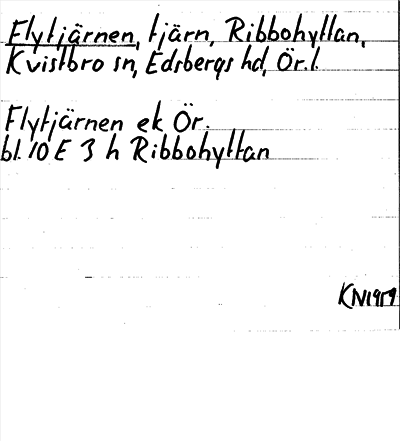 Flytjärnen, tjärn, Ribbohyttan,
Kvistbro sn, Edsbergs hd, Ör.l.
Flytjärnen ek Ör.
bl. 10 E 3 h Ribbohyttan
KN1959